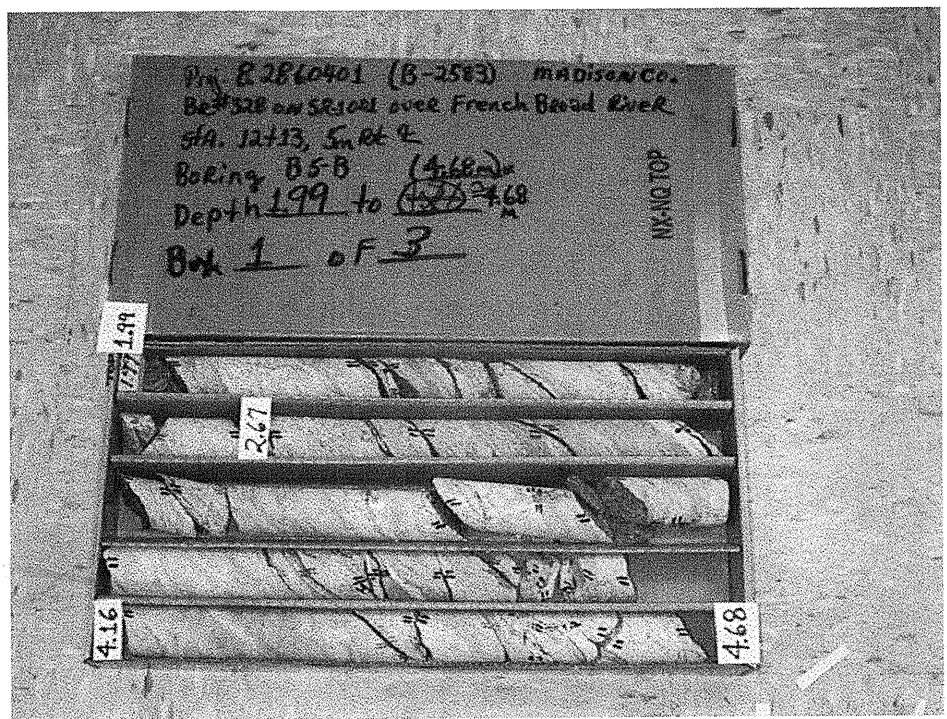 Proj 8.2860401 (B-2583) MADISON CO.
BR#328 on SR1001 over French Broad River
StA. 12+13, 5m Rt ℄
Boring B5-B (4.68m)
Depth 1.99 to 4.68 M
Box 1 oF 3
NX-NQ TOP
1.99
1.99
2.67
4.16
4.68